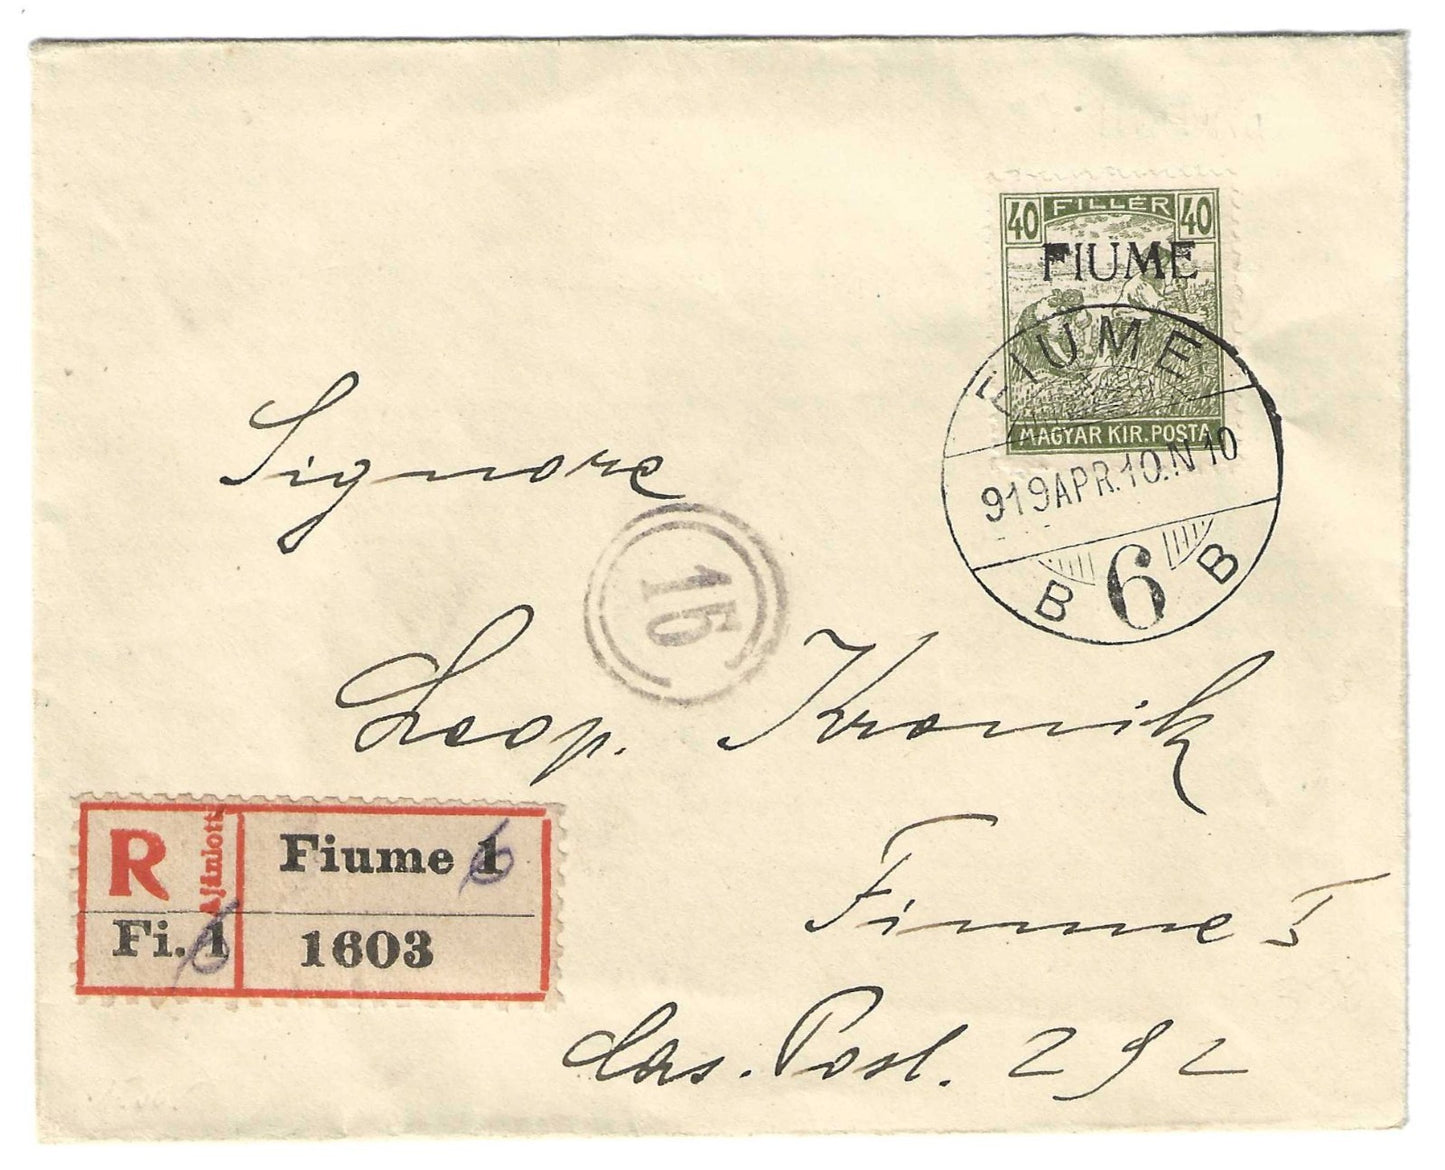 40 FILLÉR 40
FIUME
MAGYAR KIR. POSTA
FIUME
919 APR. 10. N 10
B 6 B
Signore
15
Leop. Kronik
Fiume I
Cas. Post. 292
R Ajánlott Fiume 1 6
Fi. 1 6 1603